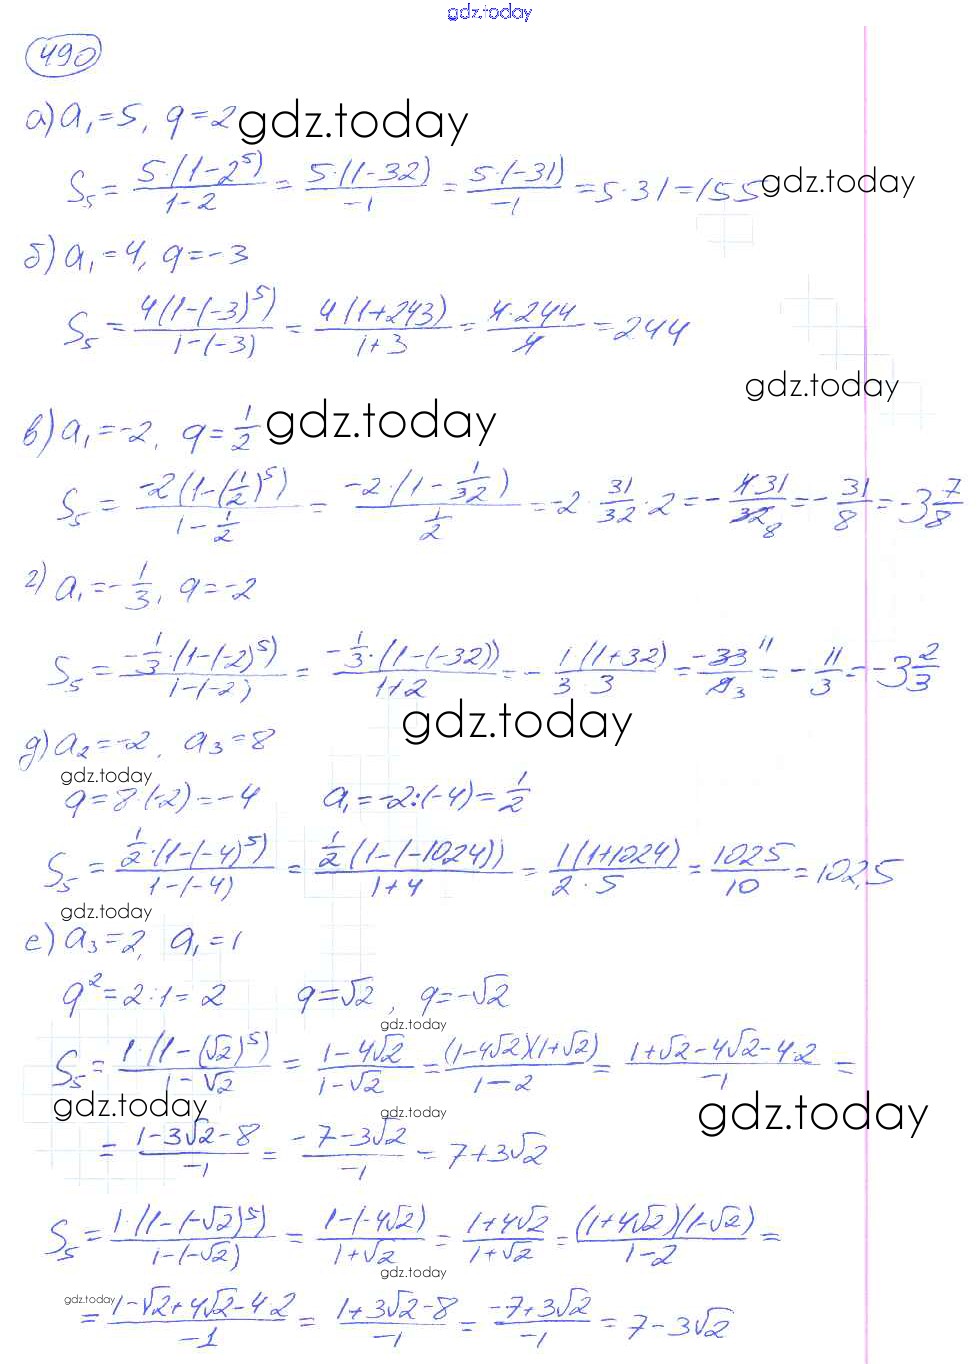 gdz.today
490
а) a₁=5, q=2 gdz.today
S₅ = 5·(1-2⁵)/1-2 = 5·(1-32)/-1 = 5·(-31)/-1 = 5·31=155 gdz.today
б) a₁=4, q=-3
S₅ = 4(1-(-3)⁵)/1-(-3) = 4(1+243)/1+3 = 4·244/4 = 244
gdz.today
в) a₁=-2, q=1/2 gdz.today
S₅ = -2(1-(1/2)⁵)/1-1/2 = -2·(1-1/32)/1/2 = -2·31/32·2 = -4·31/32 8 = -31/8 = -3 7/8
г) a₁=-1/3, q=-2
S₅ = -1/3·(1-(-2)⁵)/1-(-2) = -1/3·(1-(-32))/1+2 = -1(1+32)/3·3 = -33 11/9 3 = -11/3 = -3 2/3
gdz.today
д) a₂=-2, a₃=8
gdz.today
q=8:(-2)=-4 a₁=-2:(-4)=1/2
S₅ = 1/2·(1-(-4)⁵)/1-(-4) = 1/2(1-(-1024))/1+4 = 1(1+1024)/2·5 = 1025/10 = 102,5
gdz.today
е) a₃=2, a₁=1
q²=2:1=2 q=√2, q=-√2
gdz.today
S₅ = 1·(1-(√2)⁵)/1-√2 = 1-4√2/1-√2 = (1-4√2)(1+√2)/1-2 = 1+√2-4√2-4·2/-1 =
gdz.today gdz.today gdz.today
= 1-3√2-8/-1 = -7-3√2/-1 = 7+3√2
S₅ = 1·(1-(-√2)⁵)/1-(-√2) = 1-(-4√2)/1+√2 = 1+4√2/1+√2 = (1+4√2)(1-√2)/1-2 =
gdz.today
gdz.today
= 1-√2+4√2-4·2/-1 = 1+3√2-8/-1 = -7+3√2/-1 = 7-3√2